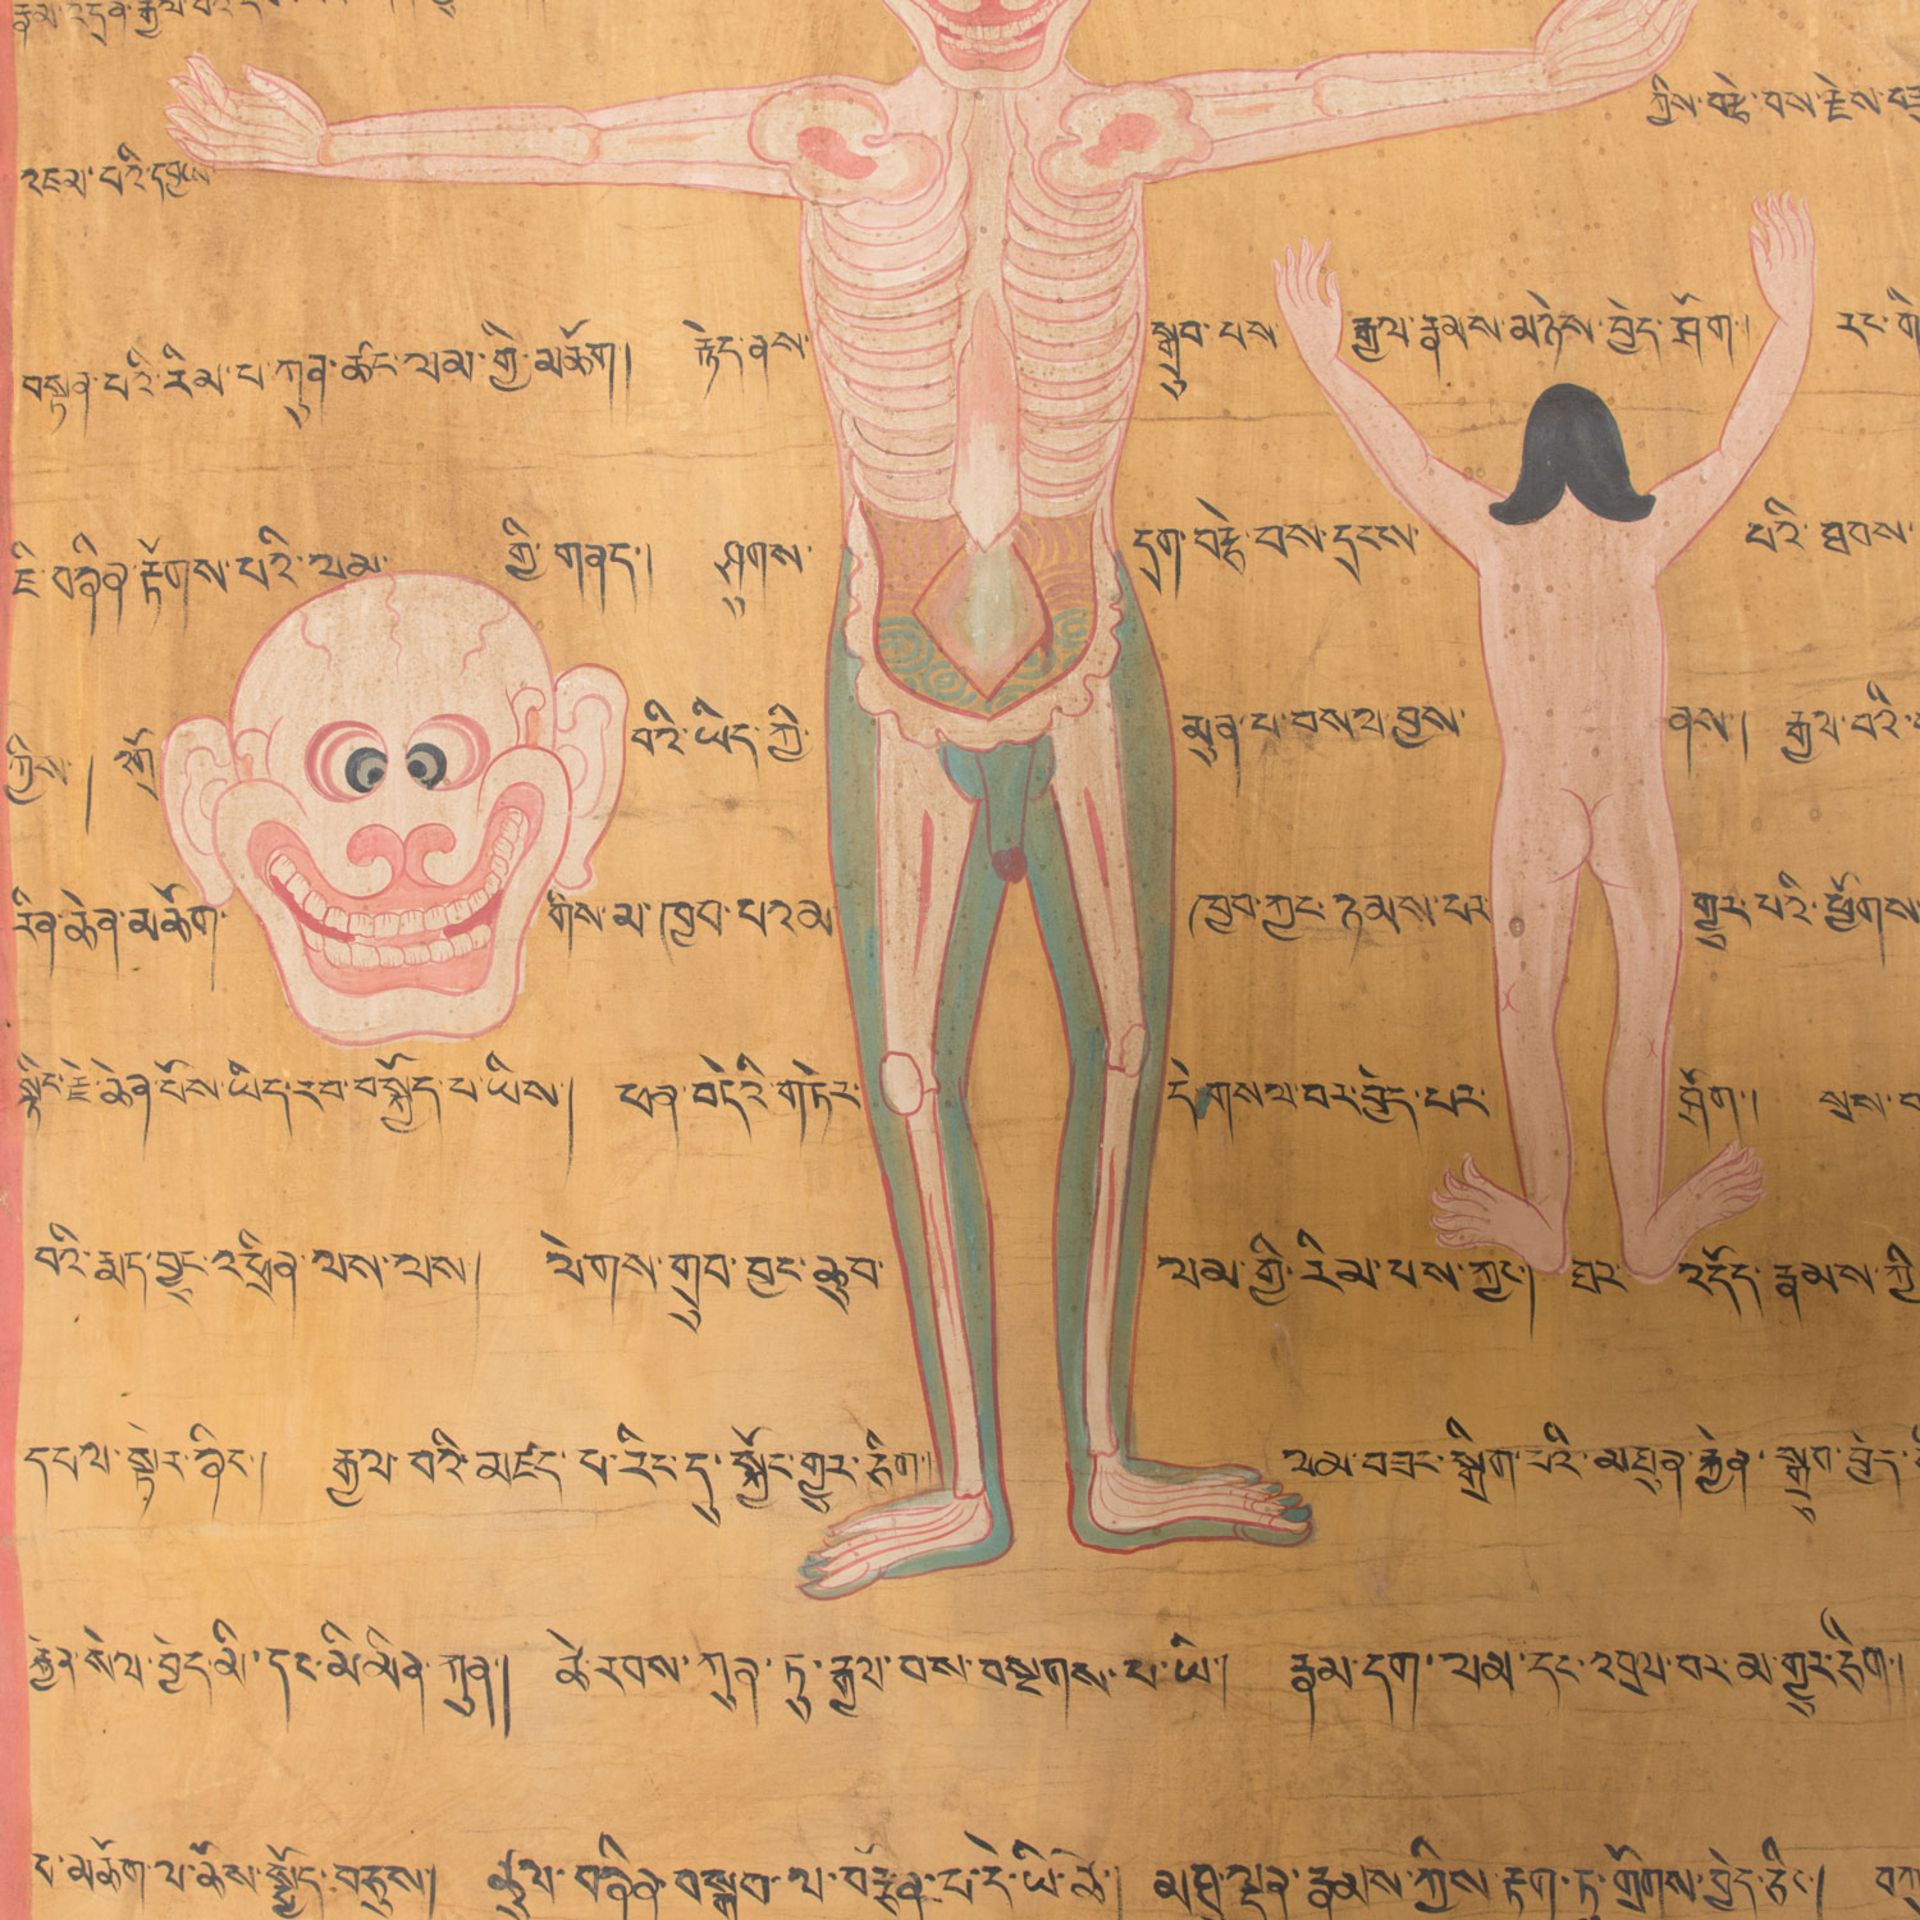 རྣམ་དཔྱན་རྒྱལ་བའི་
འཇམ་པའི་དབྱངས་
ཀྱིས་བརྩེ་བས་རྗེས་བཟུང་
བསྟན་པའི་རིམ་པ་ཀུན་ཚང་ལམ་གྱི་མཆོག། རྙེད་ནས་ སྒྲུབ་པས་ རྒྱལ་རྣམས་མཉེས་བྱེད་ཤོག། རང་གི་
ཇི་བཞིན་རྟོགས་པའི་ལམ་ གྱི་གནད། ཤུགས་ དྲག་བརྩེ་བས་དྲངས་ པའི་ཐབས་
ཀྱིས། འགྲོ་ བའི་ཡིད་ཀྱི་ མུན་པ་བསལ་བྱས་ ནས། རྒྱལ་བའི་
རིན་ཆེན་མཆོག་ གིས་མ་ཁྱབ་པའམ་ ཁྱབ་ཀྱང་ཉམས་པར་ གྱུར་པའི་ཕྱོགས་
སྙིང་རྗེ་ཆེན་པོས་ཡིད་རབ་བསྐྱོད་པ་ཡིས། ཕན་བདེའི་གཏེར་ དེ་གསལ་བར་བྱེད་པར་ ཤོག། སྲས་བ
བའི་རྨད་བྱུང་འཕྲིན་ལས་ལས། ལེགས་གྲུབ་བྱང་ཆུབ་ ལམ་གྱི་རིམ་པས་ཀྱང་། ཐར་ འདོད་རྣམས་ཀྱི་
དཔལ་སྟེར་ཞིང་། རྒྱལ་བའི་མཛད་པ་རིང་དུ་སྐྱོང་གྱུར་ཅིག། ལམ་བཟང་སྒྲིག་པའི་མཐུན་རྐྱེན་སྒྲུབ་བྱེད་ཅི
རྐྱེན་སེལ་བྱེད་མི་དང་མི་མིན་ཀུན། ཚེ་རབས་ཀུན་ཏུ་རྒྱལ་བས་བསྔགས་པ་ཡི། རྣམ་དག་ལམ་དང་འབྲལ་བར་མ་གྱུར་ཅིག།
པ་མཆོག་ལ་ཆོས་སྤྱོད་བཅུས། ཚུལ་བཞིན་བསྒྲུབ་ལ་བརྩོན་པ་དེ་ཡི་ཚེ། མཐུ་ལྡན་རྣམས་ཀྱིས་རྟག་ཏུ་གྲོགས་བྱེད་ཅིང་། བཀྲ